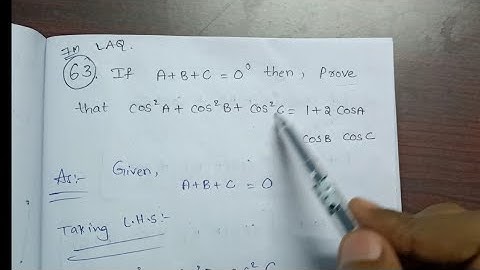 Im LAQ.
63. If A+B+C = 0° then, Prove
that cos²A + cos²B + cos²C = 1+2 cosA
cosB cosC
As:- Given,
A+B+C = 0
Taking L.H.S:-